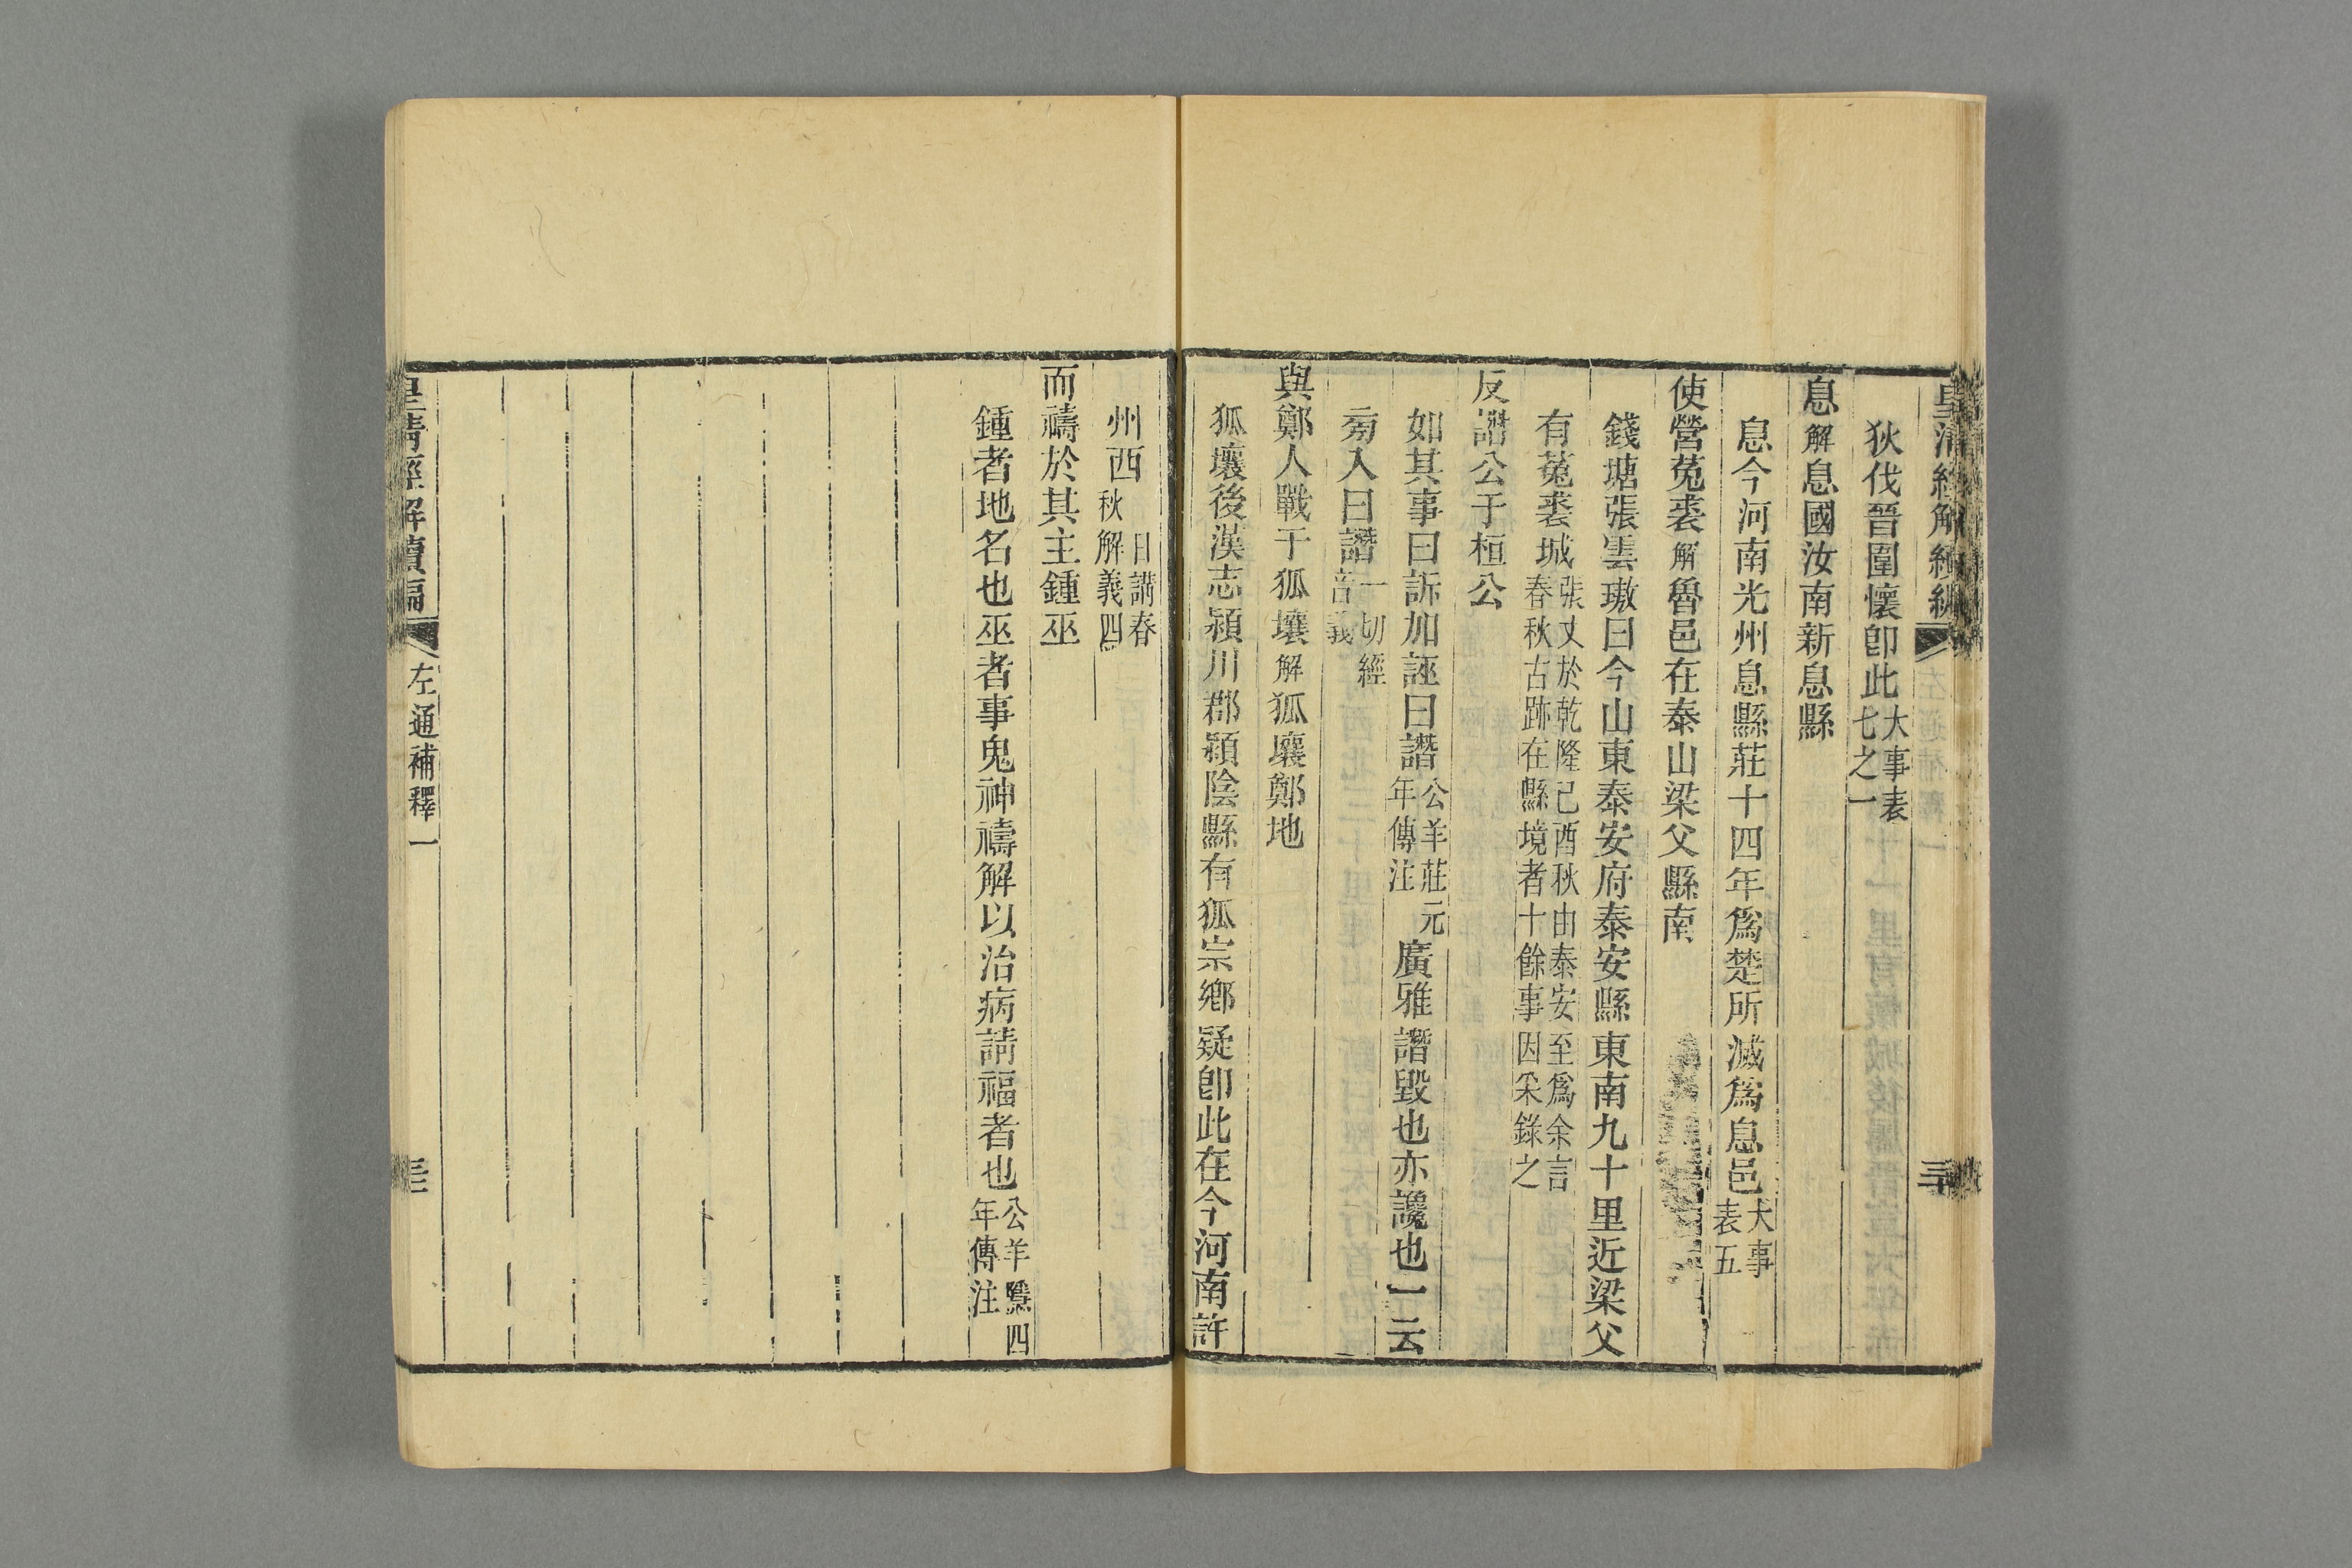 皇清經解續編 三十
狄伐晉圍懷卽此大事表七之一
息解息國汝南新息縣
息今河南光州息縣莊十四年爲楚所滅爲息邑大事表五
使營菟裘解魯邑在泰山梁父縣南
錢塘張雲璈曰今山東泰安府泰安縣東南九十里近梁父
有菟裘城張又於乾隆己酉秋由泰安至爲余言春秋古跡在縣境者十餘事因采錄之
反譖公于桓公
如其事曰訴加誣曰譖公羊莊元年傳注廣雅譖毀也亦讒也一云
旁入曰譖一切經音義
與鄭人戰于狐壤解狐壤鄭地
狐壤後漢志潁川郡潁陰縣有狐宗鄉疑卽此在今河南許
州西日講春秋解義四
而禱於其主鍾巫
鍾者地名也巫者事鬼神禱解以治病請福者也公羊隱四年傳注
皇清經解續編 左通補釋一